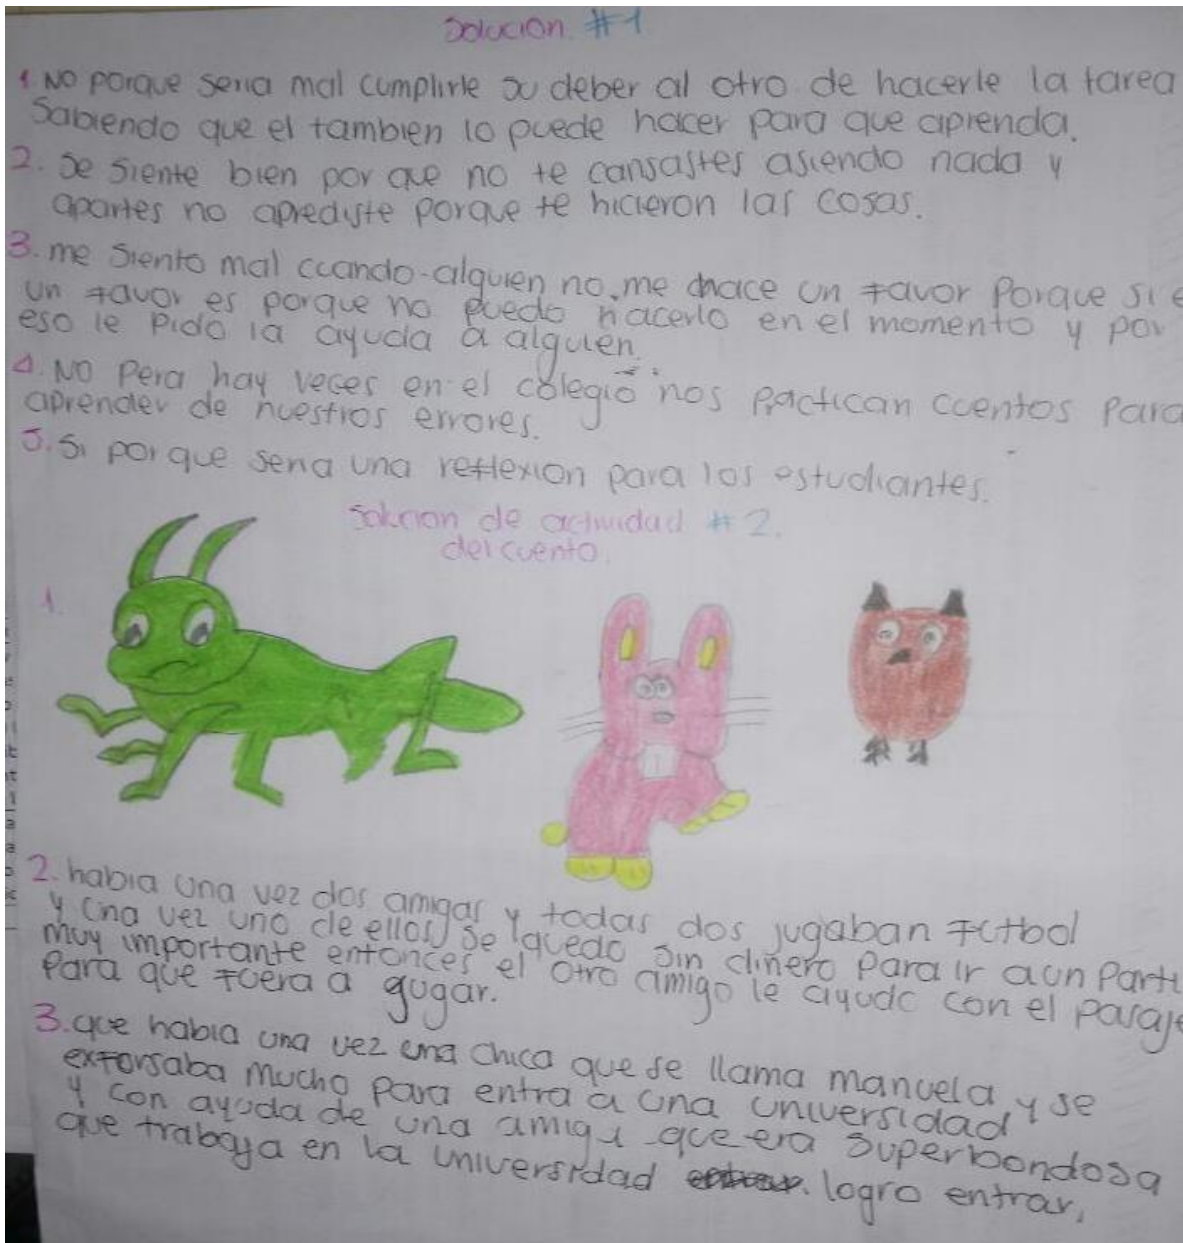 Solucion #1
1. No porque seria mal cumplirle su deber al otro de hacerle la tarea
Sabiendo que el tambien lo puede hacer para que aprenda.
2. Se siente bien por que no te cansastes asiendo nada y
apartes no aprediste porque te hicieron las cosas.
3. me siento mal cuando alguien no me hace un favor Porque si
un favor es porque no puedo hacerlo en el momento y por
eso le Pido la ayuda a alguien.
4. No Pera hay veces en el colegio nos Practican cuentos Para
aprender de nuestros errores.
5. Si porque seria una reflexion para los estudiantes.
Solucion de actividad #2.
del cuento.
1.
2. habia una vez dos amigas y todas dos jugaban Futbol
y una vez uno de ellos se quedo sin dinero Para ir aun Parti
muy importante entonces el otro amigo le ayudo con el pasaje
Para que Fuera a gugar.
3. que habia una vez una chica que se llama manuela y se
exForsaba mucho para entra a una universidad
y con ayuda de una amiga que era superbondosa
que trabaja en la universidad logro entrar,